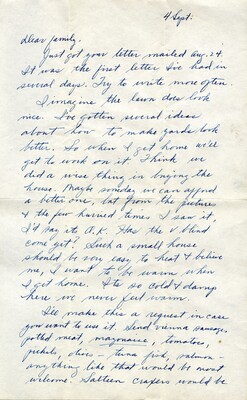 4 Sept.
Dear family,
Just got your letter mailed Aug. 24.
It was the first letter I've had in
several days. Try to write more often.
I imagine the lawn does look
nice. I've gotten several ideas
about how to make yards look
better. So when I get home we'll
get to work on it. Think we
did a wise thing in buying the
house. Maybe someday we can afford
a better one, but from the pictures
& the few hurried times I saw it,
I'd say its A.K. Has the v blind
come yet? Such a small house
should be very easy to heat & believe
me, I want to be warm when
I get home. Its so cold & damp
here we never feel warm.
I'll make this a request in case
you want to use it. Send vienna sausages
potted meat, mayonaise, tomatoes,
pickels, olives - tuna fish, salmon -
anything like that would be most
welcome. Salteen craxers would be